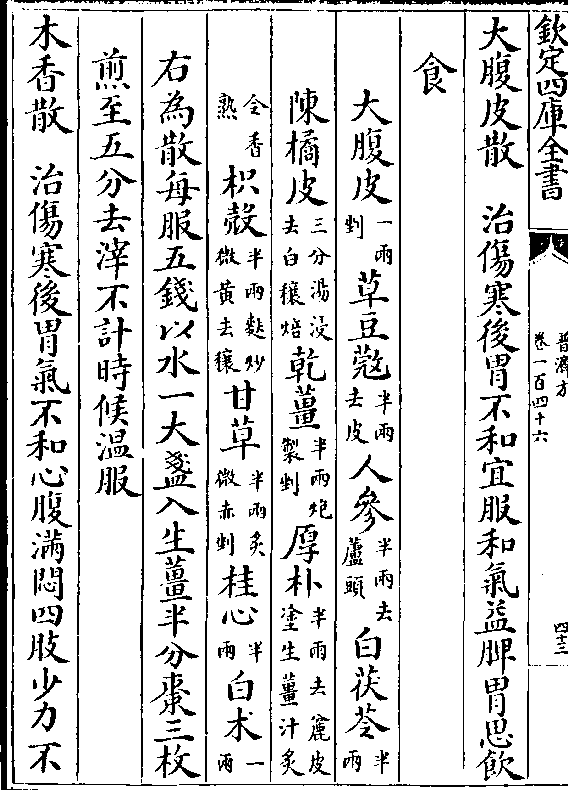 欽定四庫全書
普濟方
卷一百四十六
四十三
大腹皮散　治傷寒後胃不和宜服和氣益脾胃思飲
食
大腹皮一兩剉草豆蔲半兩去皮人參半兩去蘆頭白茯苓半兩
陳橘皮三分湯浸去白穰焙乾薑半兩炮製剉厚朴半兩去麄皮塗生薑汁炙
令香熟枳殻半兩麩炒微黄去穰甘草半兩炙微赤剉桂心半兩白术一兩
右為散每服五錢以水一大盞入生薑半分棗三枚
煎至五分去滓不計時候温服
木香散　治傷寒後胃氣不和心腹滿悶四肢少力不